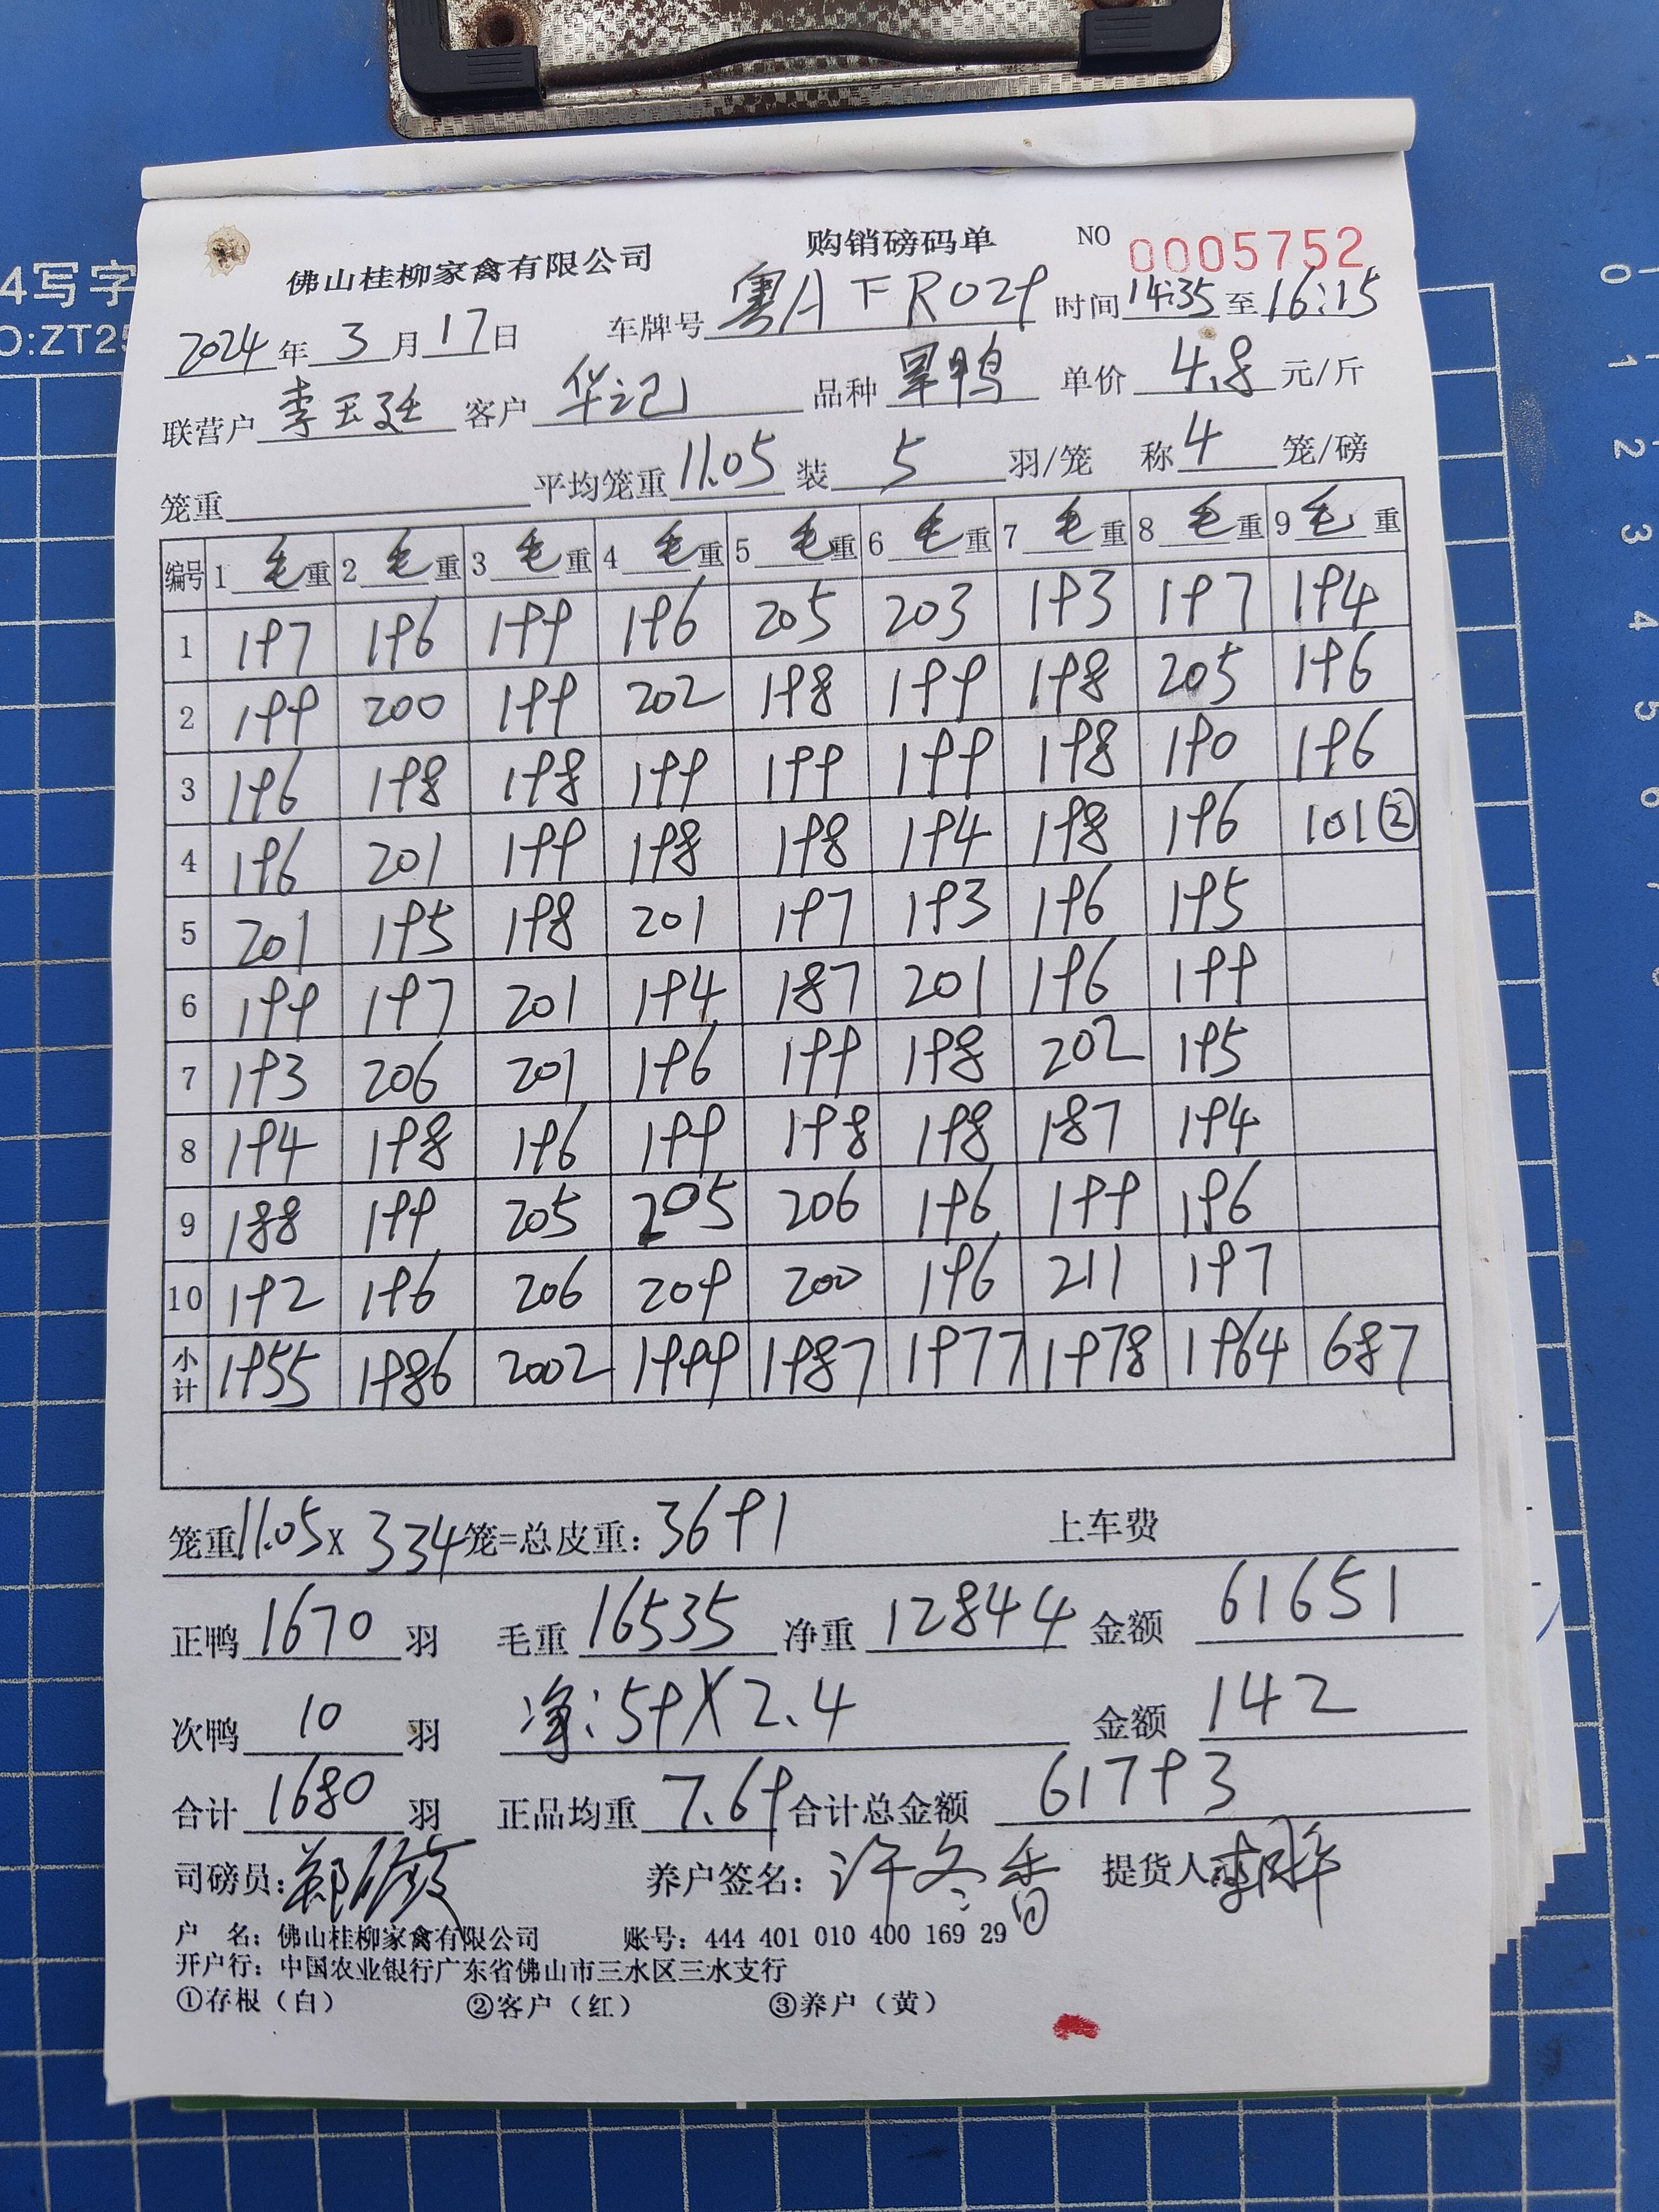 4写字
O:ZT25
0 1 2 3 4 5 6 7
佛山桂柳家禽有限公司 购销磅码单 NO 0005752
2024年3月17日 车牌号 粤AFR029 时间14:35至16:15
联营户 李玉廷 客户 华记 品种 旱鸭 单价 4.8 元/斤
笼重 平均笼重 11.05 装 5 羽/笼 称 4 笼/磅
编号 1毛重 2毛重 3毛重 4毛重 5毛重 6毛重 7毛重 8毛重 9毛重
1 197 196 199 196 205 203 193 197 194
2 199 200 199 202 198 199 198 205 196
3 196 198 198 199 199 199 198 190 196
4 196 201 199 198 198 194 198 196 101②
5 201 195 198 201 197 193 196 195
6 199 197 201 194 187 201 196 199
7 193 206 201 196 199 198 202 195
8 194 198 196 199 198 198 187 194
9 188 199 205 205 206 196 199 196
10 192 196 206 209 200 196 211 197
小计 1955 1986 2002 1999 1987 1977 1978 1964 687
笼重11.05X334笼=总皮重：3691 上车费
正鸭 1670 羽 毛重 16535 净重 12844 金额 61651
次鸭 10 羽 净：59X2.4 金额 142
合计 1680 羽 正品均重 7.69 合计总金额 61793
司磅员： 养户签名：许冬香 提货人
户 名：佛山桂柳家禽有限公司 账号：444 401 010 400 169 29
开户行：中国农业银行广东省佛山市三水区三水支行
①存根（白） ②客户（红） ③养户（黄）